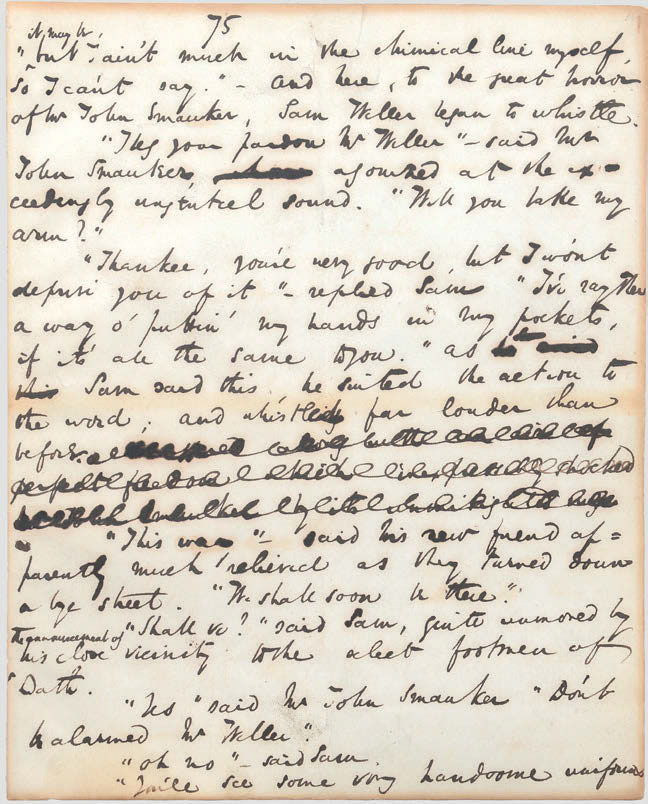 75
it may be,
"but I ain't much in the chimical line myself,
so I can't say." – and here, to the great horror
of Mr John Smauker, Sam Weller began to whistle.
"I beg your pardon Mr Weller" – said Mr
John Smauker, agonized at the ex-
ceedingly ungenteel sound. "Will you take my
arm?"
"Thankee, you're very good, but I won't
deprive you of it" – replied Sam "I've rayther
a way o' puttin' my hands in my pockets,
if it's all the same to you." as
Sam said this he suited the action to
the word; and whistled far louder than
before.
"This way" – said his new friend ap=
parently much relieved as they turned down
a bye street. "We shall soon be there."
"Shall we?" said Sam, quite unmoved by
the announcement of
his close vicinity to the select footmen of
Bath.
"Yes" said Mr John Smauker "Don't
be alarmed Mr Weller."
"oh no" – said Sam.
"You'll see some very handsome uniforms